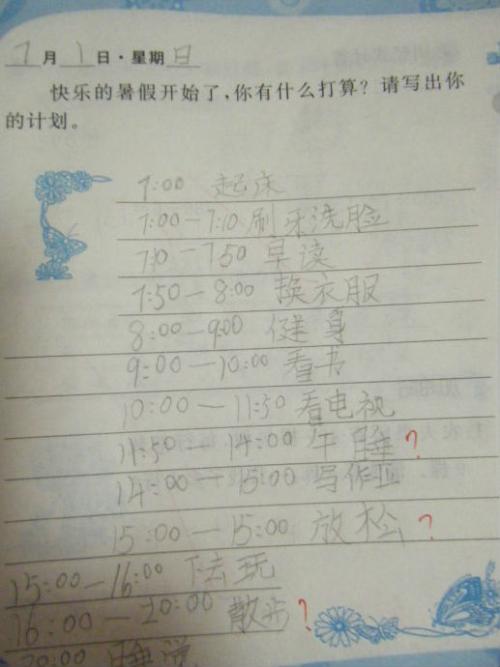 7月1日·星期日
快乐的暑假开始了,你有什么打算?请写出你
的计划。
7:00 起床
7:00-7:10 刷牙洗脸
7:10-7:50 早读
7:50-8:00 换衣服
8:00-9:00 健身
9:00-10:00 看书
10:00-11:50 看电视
11:50-14:00 午睡?
14:00-15:00 写作业
15:00-15:00 放松?
15:00-16:00 下去玩
16:00-20:00 散步?
20:00 睡觉